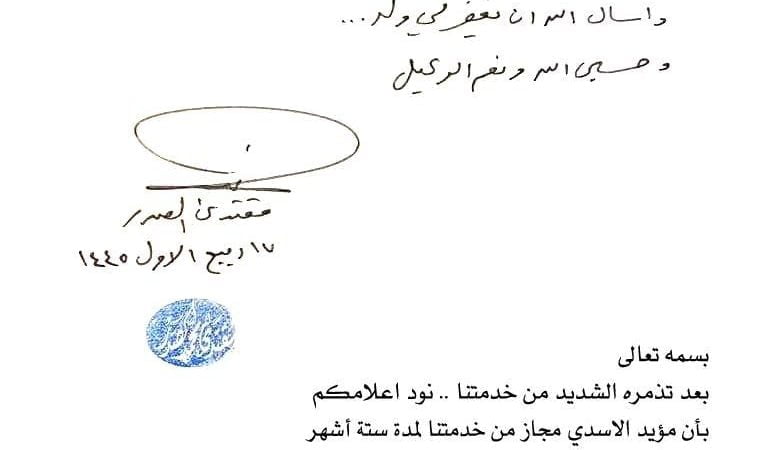 واسال الله ان يغفر لي ولد...
وحسبي الله ونعم الوكيل
مقتدى الصدر
١٧ ربيع الاول ١٤٤٥
بسمه تعالى
بعد تذمره الشديد من خدمتنا .. نود اعلامكم
بأن مؤيد الاسدي مجاز من خدمتنا لمدة ستة أشهر